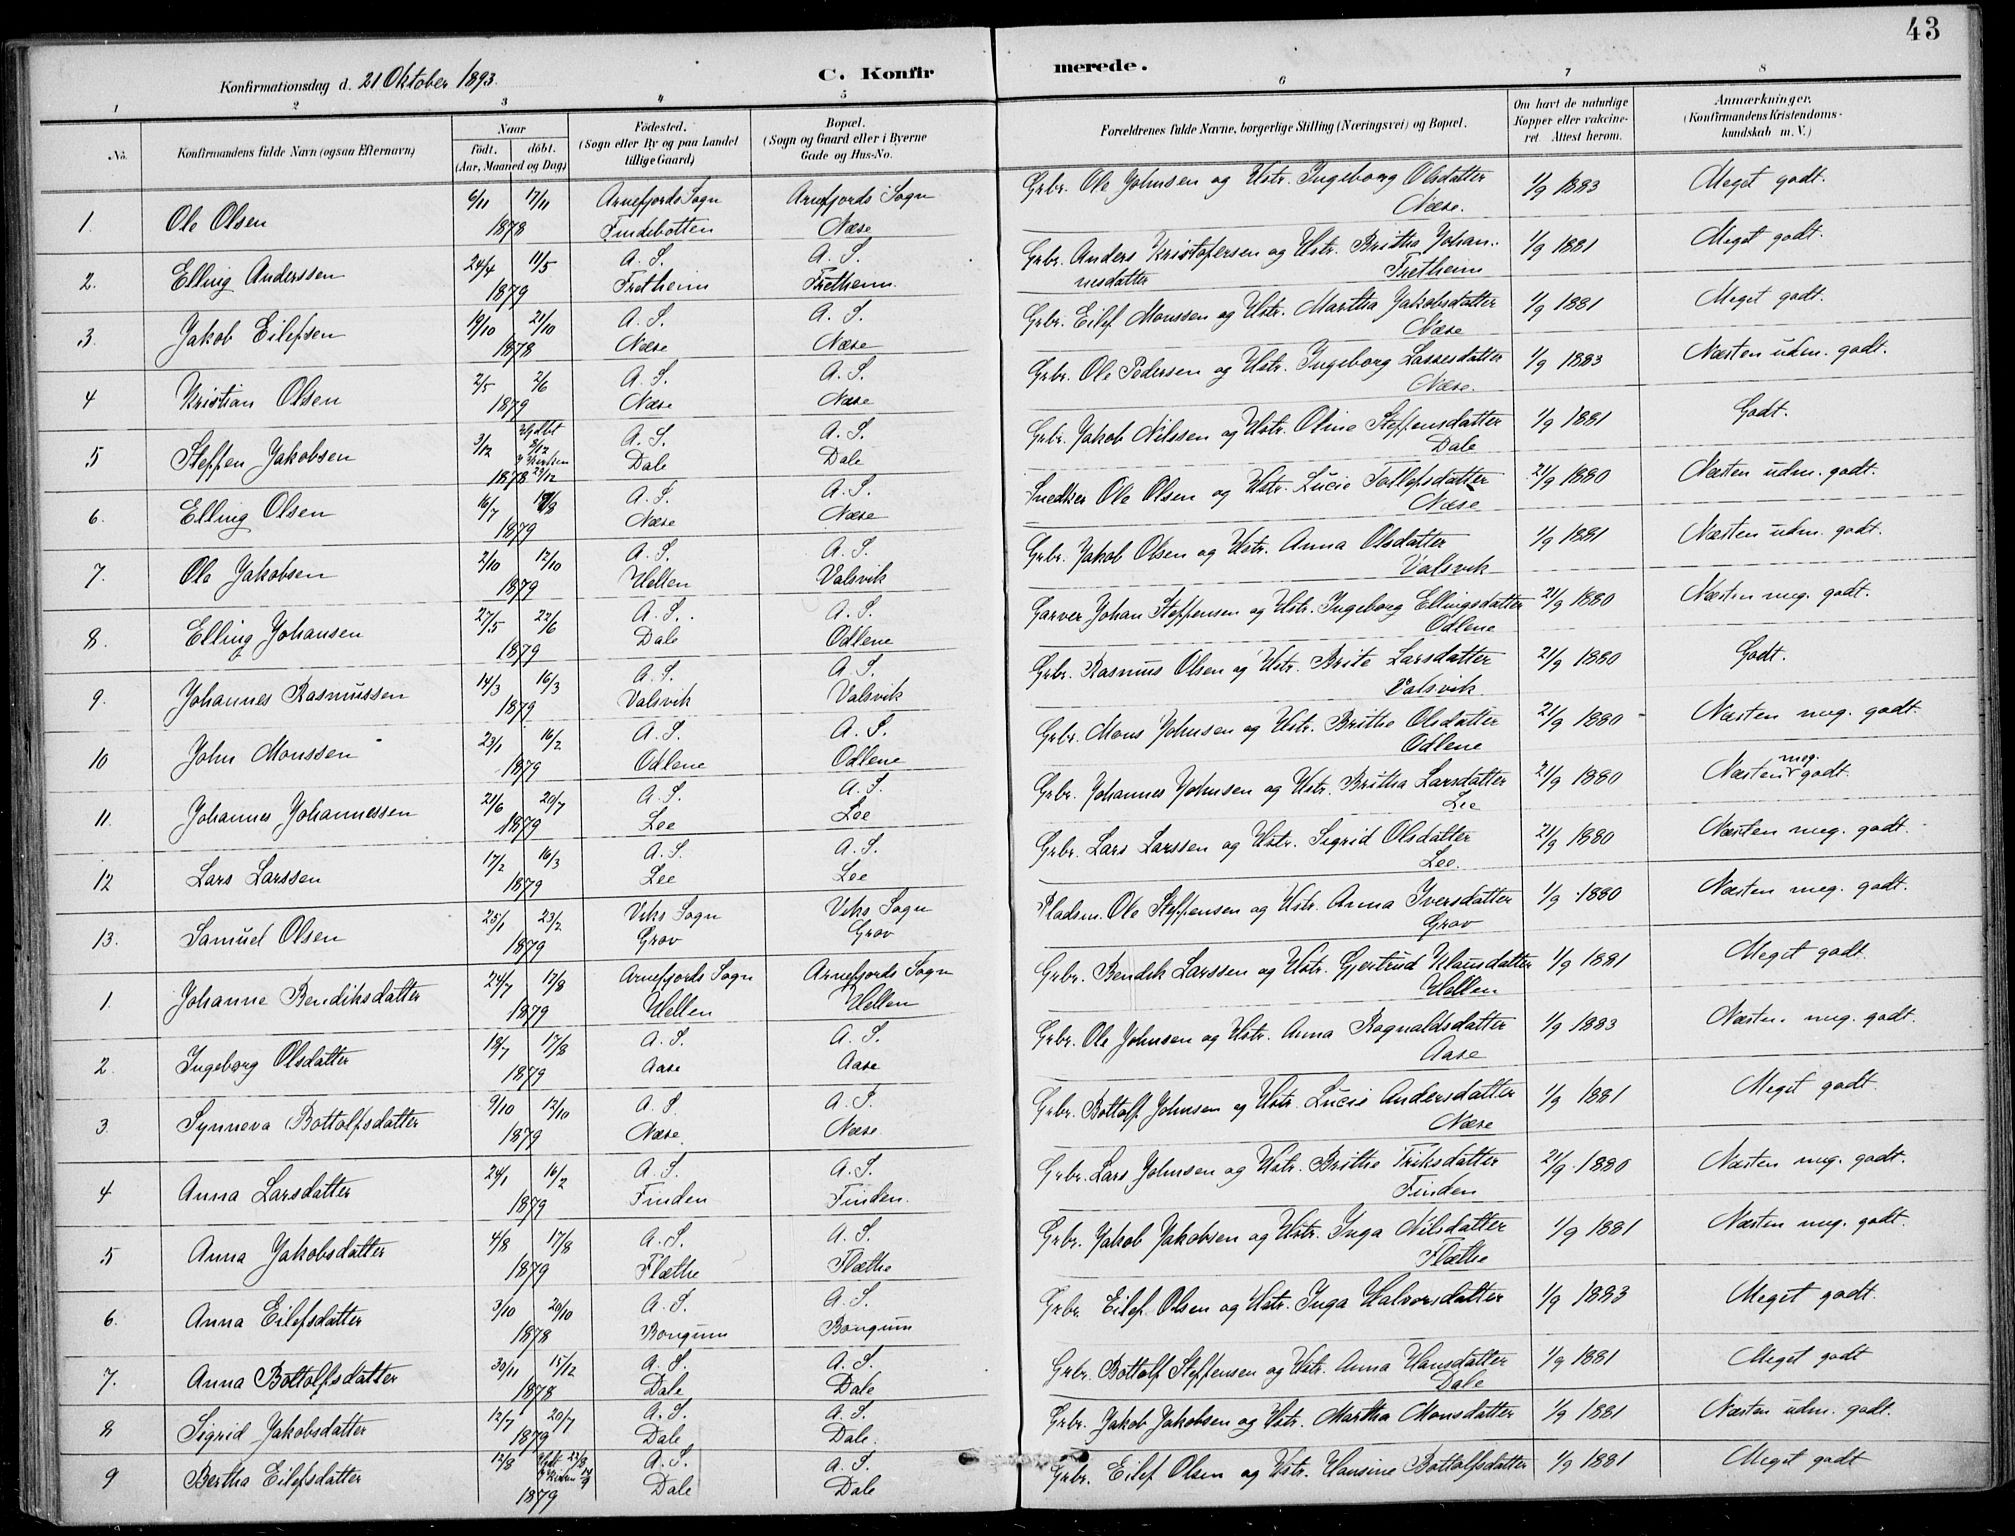 43
Konfirmationsdag d. 21 Oktober 1893.
C. Konfirmerede.
1 2 3 4 5 6 7 8
No. Konfirmandens fulde Navn (ogsaa Efternavn)
Naar født. døbt. (Aar, Maaned og Dag)
Fødested. (Sogn eller By og paa Landet tillige Gaard)
Bopæl. (Sogn og Gaard eller i Byerne Gade og Hus-No.
Forældrenes fulde Navne, borgerlige Stilling (Næringsvei) og Bopæl.
Om havt de naturlige Kopper eller vakcineret Attest herom.
Anmærkninger, (Konfirmandens Kristendomskundskab m. V.)
1. Ole Olsen 6/11 17/11 1878 Arnefjords Sogn Findebotten Arnefjords Sogn Næse Grbr. Ole Johnsen og Hstr. Ingeborg Olsdatter Næse. 1/9 1883 Meget godt.
2. Elling Anderssen 24/4 11/5 1879 A. S. Fretheim A. S. Fretheim. Grbr. Anders Kristofersen og Hstr. Britha Johannesdatter Fretheim 1/9 1881 Meget godt.
3. Jakob Eilefsen 19/10 21/10 1878 A. S. Næse A. S. Næse Grbr. Eilef Monssen og Hstr. Martha Jakobsdatter Næse 1/9 1881 Meget godt.
4 Kristian Olsen 2/5 2/6 1879 A. S. Næse A. S. Næse Grbr. Ole Pedersen og Hstr. Ingeborg Lassesdatter Næse. 1/9 1883 Næsten udm. godt.
5 Steffen Jakobsen 3/12 8/12 29/12 1878 A. S. Dale A. S. Dale Grbr. Jakob Nilssen og Hstr. Oline Steffensdatter Dale 1/9 1881 Godt.
6. Elling Olsen 16/7 1879 A. S. Næse A. S. Næse Snedker Ole Olsen og Hstr. Lucie Tollefsdatter Næse 21/9 1880 Næsten udm. godt.
7. Ole Jakobsen 2/10 12/10 1879 A. S. Hellen A. S. Valsvik Grbr. Jakob Olsen og Hstr. Anna Olsdatter Valsvik 1/9 1881 Næsten udm. godt.
8. Elling Johansen 27/5 22/6 1879 A. S. Dale A. S. Odlene Garver Johan Steffensen og Hstr. Ingeborg Ellingsdatter Odlene 21/9 1880 Næsten meg. godt.
9. Johannes Rasmussen 14/3 16/3 1879 A. S. Valsvik A. S. Valsvik Grbr. Rasmus Olsen og Hstr. Brite Larsdatter Valsvik 21/9 1880 Godt.
10 John Monssen 23/1 16/2 1879 A. S. Odlene A. S. Odlene Grbr. Mons Johnsen og Hstr. Brithe Olsdatter Odlene 21/9 1880 Næsten meg. godt.
11. Johannes Johannessen 21/6 20/7 1879 A. S. Lee A. S. Lee Grbr. Johannes Johnsen og Hstr. Britha Larsdatter Lee 21/9 1880 Næsten meg. godt.
12 Lars Larssen 17/2 16/3 1879 A. S. Lee A. S. Lee Grbr. Lars Larssen og Hstr. Sigrid Olsdatter Lee. 21/9 1880 Næsten meg. godt.
13. Samuel Olsen 25/1 23/2 1879 Viks Sogn Grov Viks Sogn Grov Pladsm. Ole Steffensen og Hstr. Anna Iversdatter Grov 1/9 1880 Næsten meg. godt.
1. Johanne Bendiksdatter 24/7 17/8 1879 Arnefjords Sogn Hellen Arnefjords Sogn Hellen Grbr. Bendik Larssen og Hstr. Gjertrud Klausdatter Hellen 1/9 1881 Meget godt.
2. Ingeborg Olsdatter 18/7 17/8 1879 A. S. Aase A. S. Aase Grbr. Ole Johnsen og Hstr. Anna Ragnaldsdatter Aase 1/9 1883 Næsten meg. godt.
3. Synneva Bottolfsdatter 9/10 12/10 1879 A. S. Næse A. S. Næse Grbr. Bottolf Johnsen og Hstr. Lucie Andersdatter Næse 1/9 1881 Meget godt.
4 Anna Larsdatter 24/1 16/2 1879 A. S. Finden A. S. Finden. Grbr. Lars Johnsen og Hstr. Brithe Eriksdatter Finden 21/9 1880 Næsten meg. godt.
5 Anna Jakobsdatter 4/8 17/8 1879 A. S. Flæthe A. S. Flæthe Grbr. Jakob Jakobsen og Hstr. Inga Nilsdatter Flæthe 1/9 1881 Næsten meg. godt.
6. Anna Eilefsdatter 3/10 20/10 1878 A. S. Bongum A. S. Bongum Grbr. Eilef Olsen og Hstr. Inga Halvorsdatter 1/9 1883 Meget godt.
7. Anna Bottolfsdatter 30/11 15/12 1878 A. S. Dale A. S. Dale Grbr. Bottolf Steffensen og Hstr. Anna Hansdatter Dale 1/9 1881 Meget godt
8 Sigrid Jakobsdatter 12/7 20/7 1879 A. S. Dale A. S. Dale Grbr. Jakob Jakobsen og Hstr. Martha Monsdatter 1/9 1881 Næsten udm. godt.
9 Bertha Eilefsdatter 12/8 1879 A. S. Dale A. S. Dale Grbr. Eilef Olsen og Hstr. Hansine Bottolfsdatter 1/9 1881 Meget godt